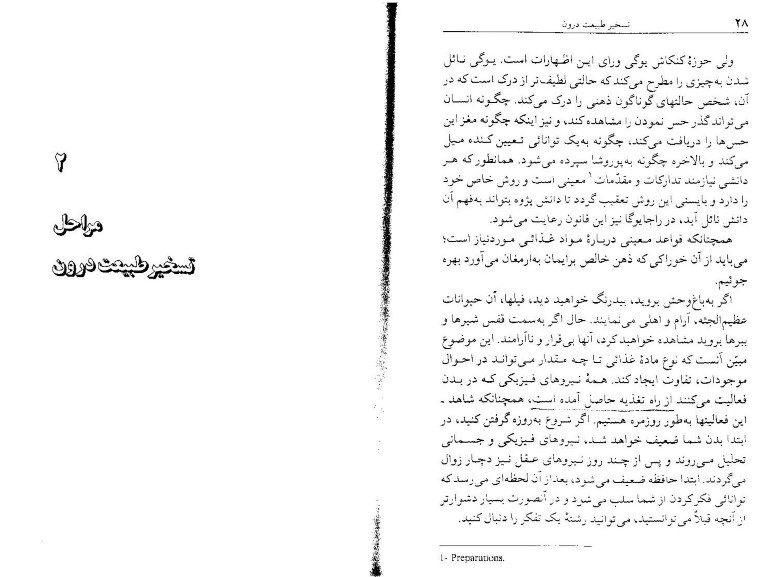 ۲۸
تسخیر طبیعت درون
ولی حوزهٔ کنکاش یوگی ورای این اظهارات است. یوگی نائل
شدن به‌چیزی را مطرح می‌کند که حالتی لطیف‌تر از درک است که در
آن، شخص حالتهای گوناگون ذهنی را درک می‌کند. چگونه انسان
می‌تواند گذر حس نمودن را مشاهده کند، و نیز اینکه چگونه مغز این
حس‌ها را دریافت می‌کند، چگونه به‌یک توانائی تعیین کننده میل
می‌کند و بالاخره چگونه به‌پوروشا سپرده می‌شود. همانطور که هر
دانشی نیازمند تدارکات و مقدّمات۱ معینی است و روش خاص خود
را دارد و بایستی این روش تعقیب گردد تا دانش پژوه بتواند به‌فهم آن
دانش نائل آید، در راجایوگا نیز این قانون رعایت می‌شود.
همچنانکه قواعد معینی دربارهٔ مواد غذائی موردنیاز است؛
می‌باید از آن خوراکی که ذهن خالص برایمان به‌ارمغان می‌آورد بهره
جوئیم.
اگر به‌باغ‌وحش بروید، بیدرنگ خواهید دید، فیلها، آن حیوانات
عظیم‌الجثه، آرام و اهلی می‌نمایند. حال اگر به‌سمت قفس شیرها و
ببرها بروید مشاهده خواهید کرد، آنها بی‌قرار و ناآرامند. این موضوع
مبیّن آنست که نوع مادهٔ غذائی تا چه مقدار می‌تواند در احوال
موجودات، تفاوت ایجاد کند. همهٔ نیروهای فیزیکی که در بدن
فعالیت می‌کنند از راه تغذیه حاصل آمده است، همچنانکه شاهد ـ
این فعالیتها به‌طور روزمره هستیم. اگر شروع به‌روزه گرفتن کنید، در
ابتدا بدن شما ضعیف خواهد شد، نیروهای فیزیکی و جسمانی
تحلیل می‌روند و پس از چند روز نیروهای عقل نیز دچار زوال
می‌گردند. ابتدا حافظه ضعیف می‌شود، بعد از آن لحظه‌ای می‌رسد که
توانائی فکر کردن از شما سلب می‌شود و در آنصورت بسیار دشوارتر
از آنچه قبلاً می‌توانستید، می‌توانید رشتهٔ یک تفکر را دنبال کنید.
1- Preparations.
۲
مراحل
تسخیر طبیعت درون